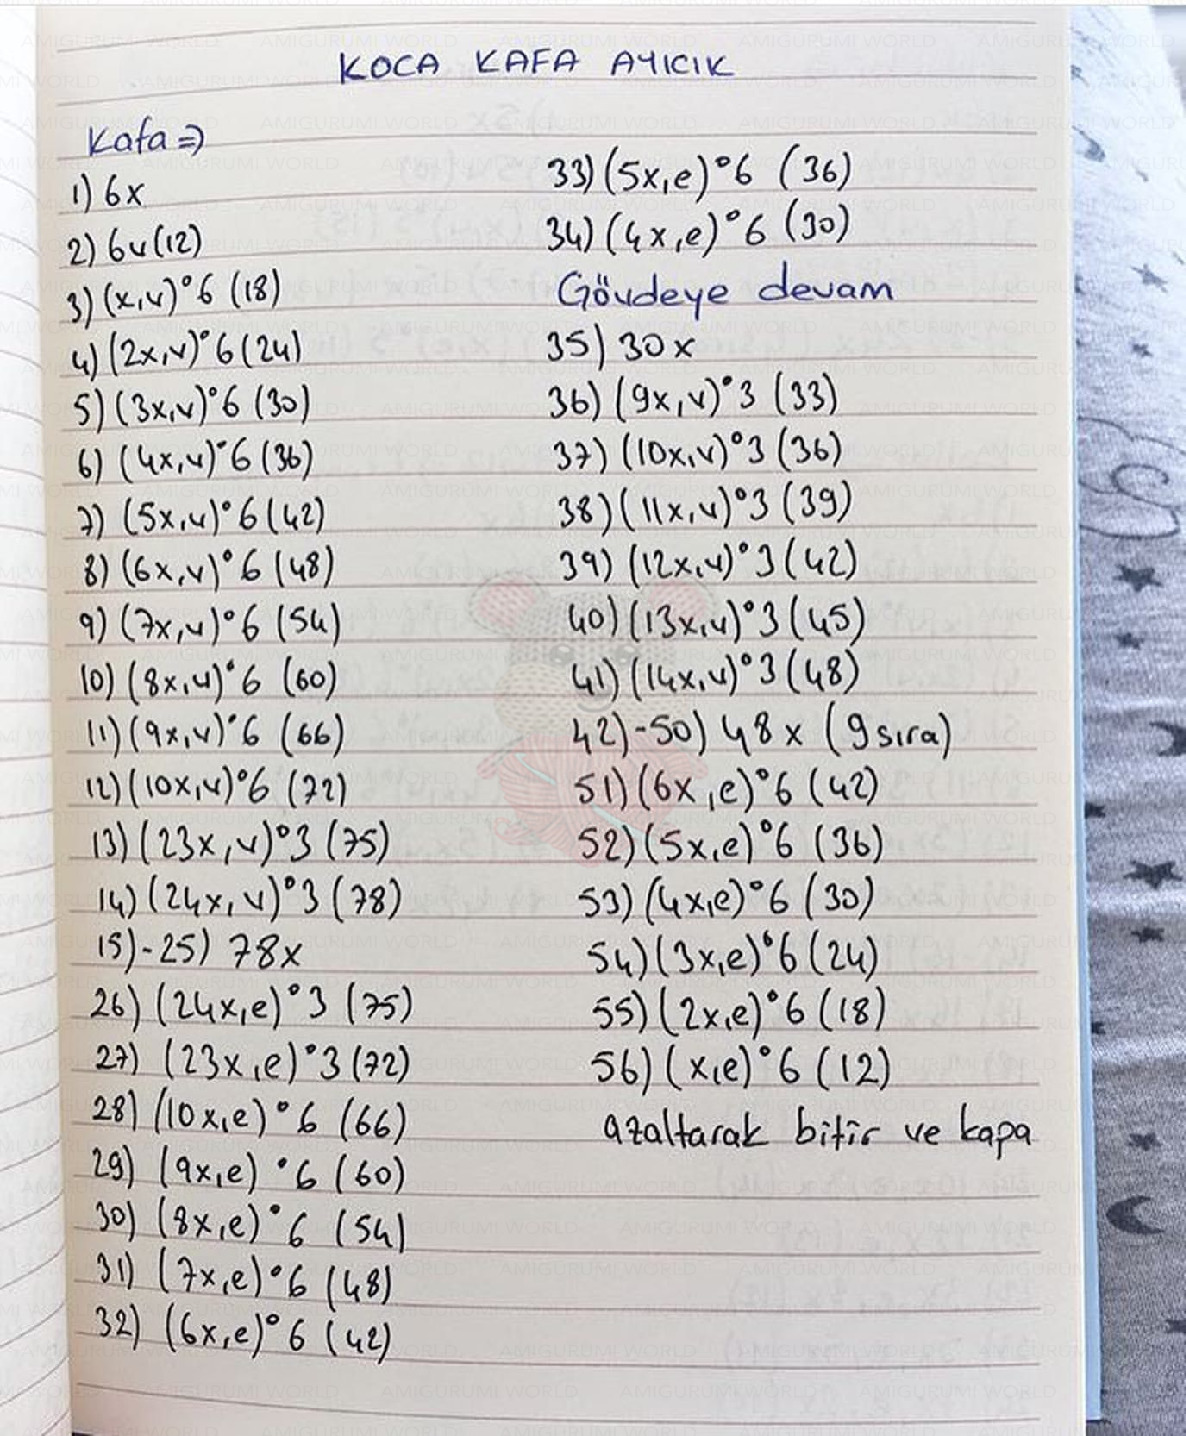 KOCA KAFA AYICIK
Kafa =>
1) 6x
2) 6v (12)
3) (x,v)°6 (18)
4) (2x,v)°6 (24)
5) (3x,v)°6 (30)
6) (4x,v)°6 (36)
7) (5x,v)°6 (42)
8) (6x,v)°6 (48)
9) (7x,v)°6 (54)
10) (8x,v)°6 (60)
11) (9x,v)°6 (66)
12) (10x,v)°6 (72)
13) (23x,v)°3 (75)
14) (24x,v)°3 (78)
15)-25) 78x
26) (24x,e)°3 (75)
27) (23x,e)°3 (72)
28) (10x,e)°6 (66)
29) (9x,e)°6 (60)
30) (8x,e)°6 (54)
31) (7x,e)°6 (48)
32) (6x,e)°6 (42)
33) (5x,e)°6 (36)
34) (4x,e)°6 (30)
Gövdeye devam
35) 30x
36) (9x,v)°3 (33)
37) (10x,v)°3 (36)
38) (11x,v)°3 (39)
39) (12x,v)°3 (42)
40) (13x,v)°3 (45)
41) (14x,v)°3 (48)
42)-50) 48x (9 sıra)
51) (6x,e)°6 (42)
52) (5x,e)°6 (36)
53) (4x,e)°6 (30)
54) (3x,e)°6 (24)
55) (2x,e)°6 (18)
56) (x,e)°6 (12)
azaltarak bitir ve kapa
AMIGURUMI WORLD